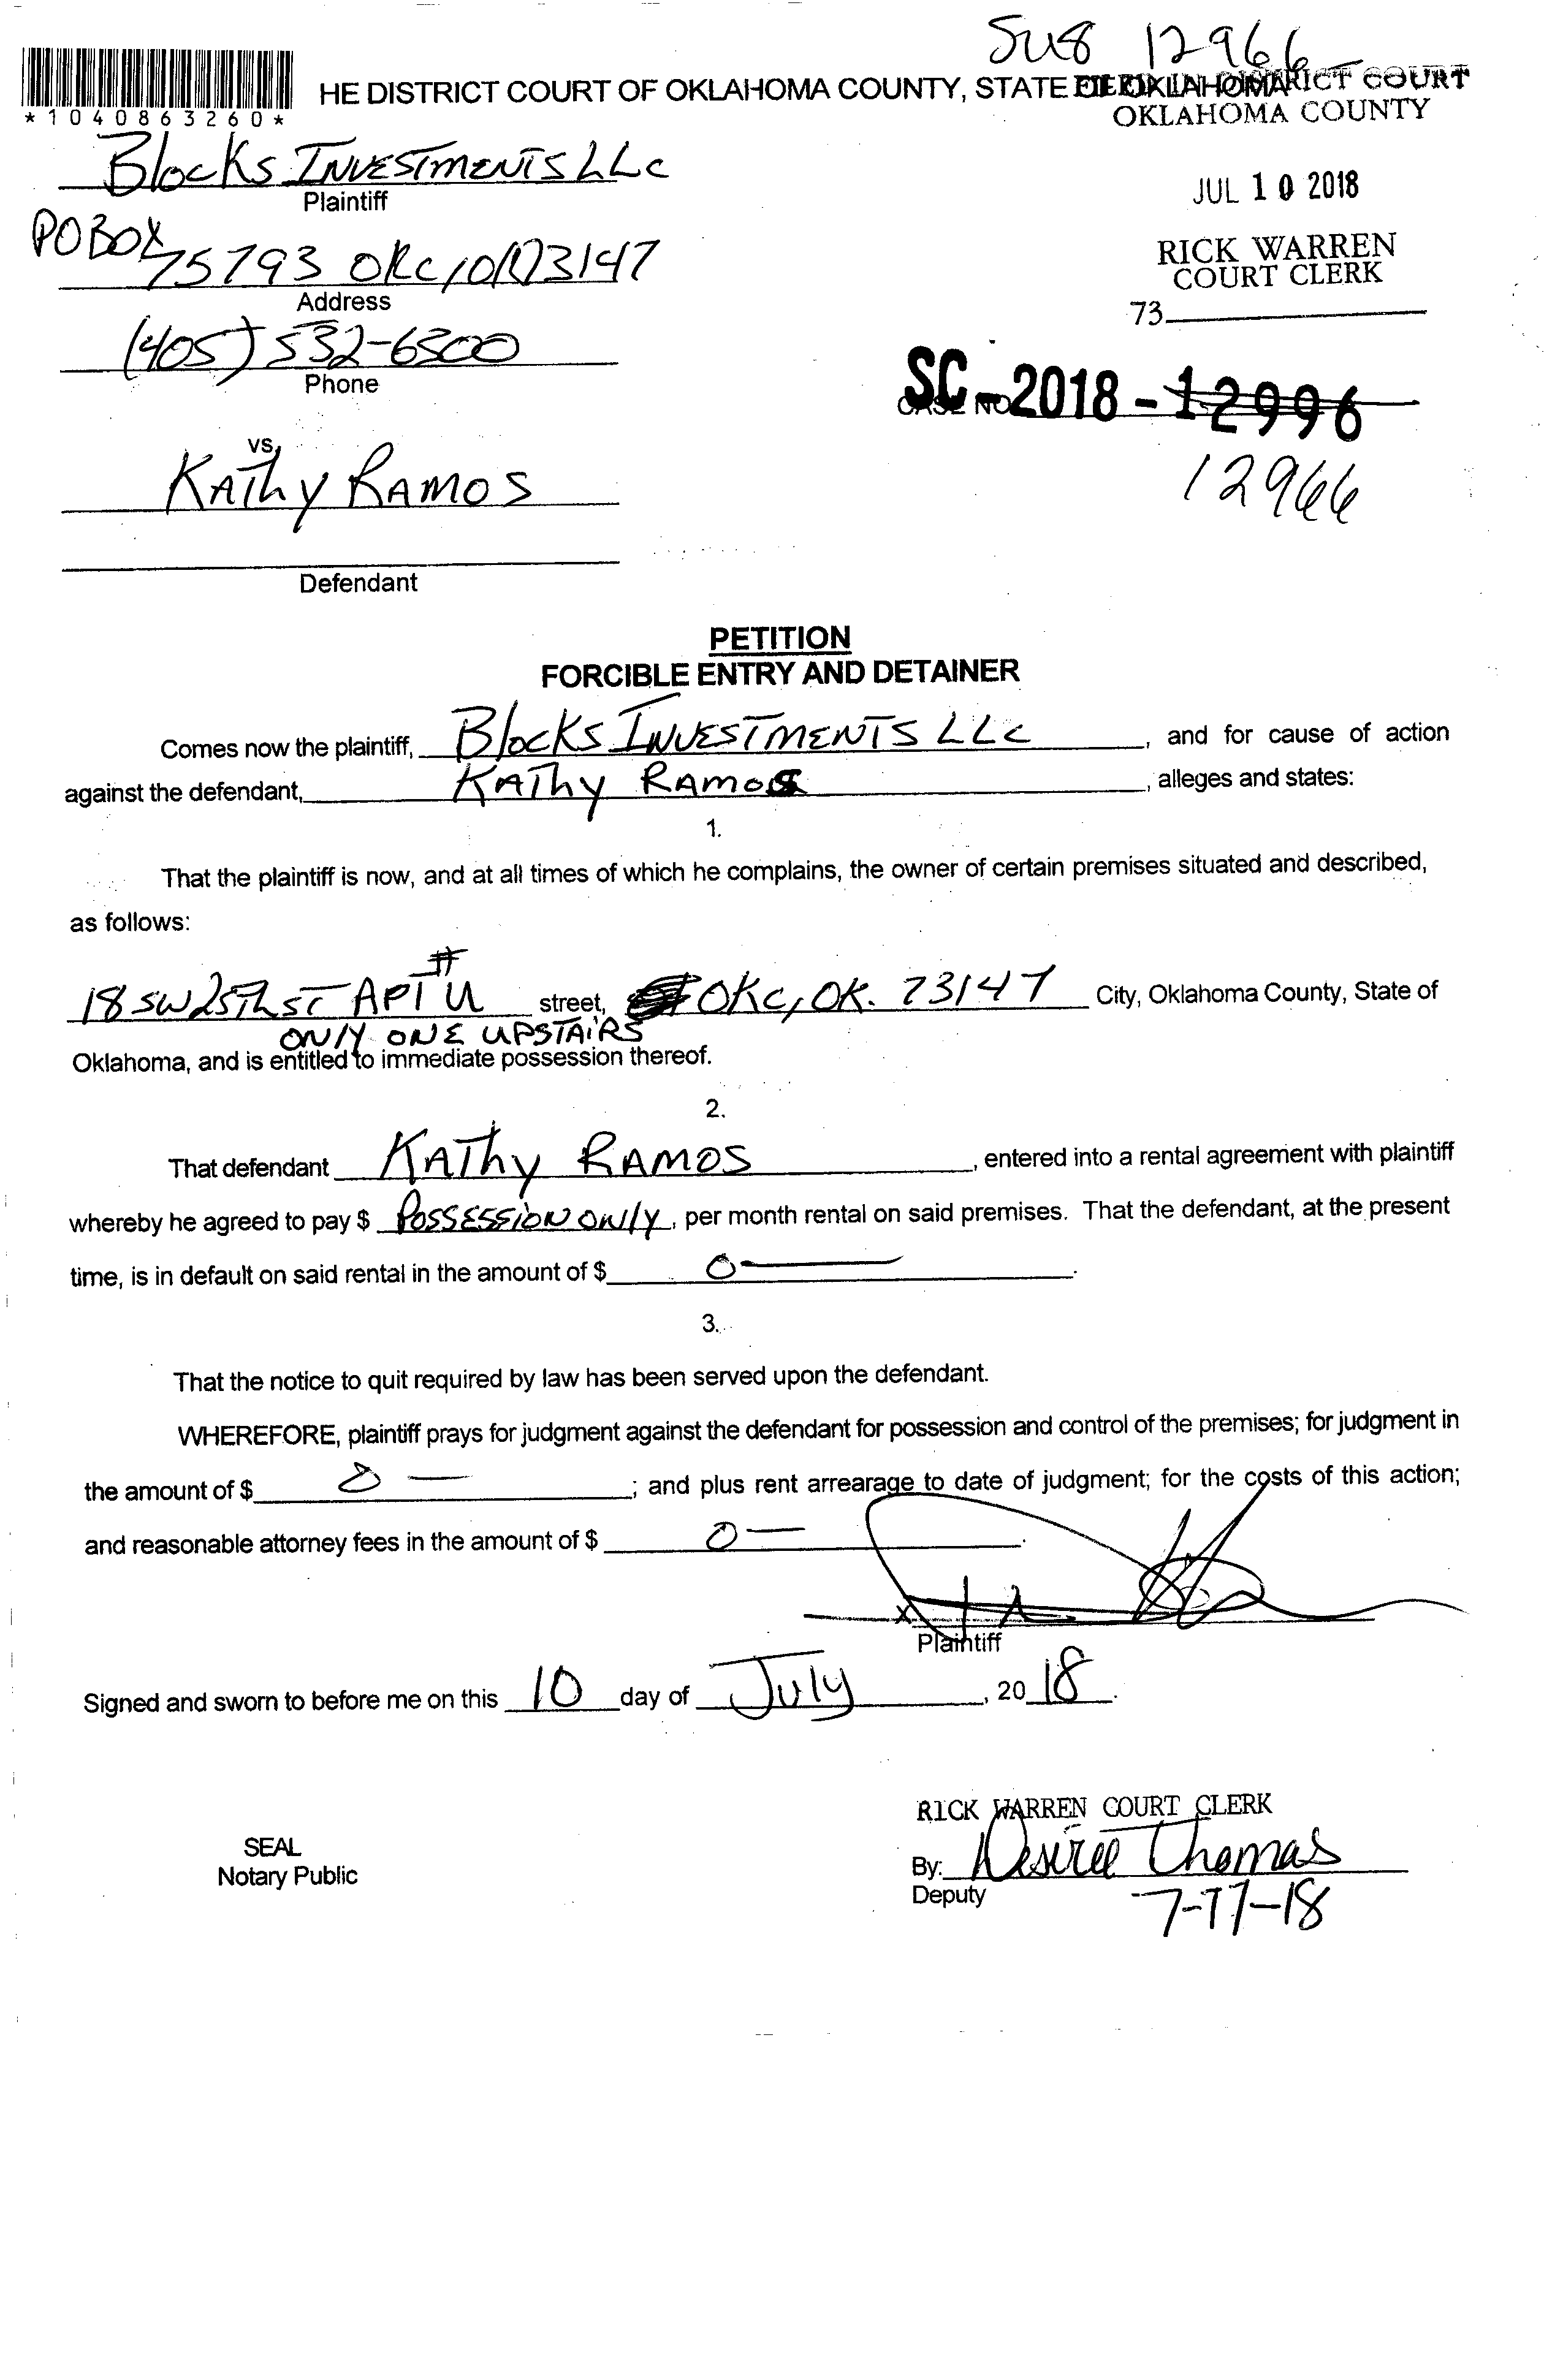 SU8 12966
HE DISTRICT COURT OF OKLAHOMA COUNTY, STATE OF OKLAHOMA
FILED IN DISTRICT COURT
OKLAHOMA COUNTY
*1040863260*
Blocks INVESTMENTS LLC
Plaintiff
JUL 10 2018
PO BOX
75793 OKC, OK 73147
Address
RICK WARREN
COURT CLERK
73
(405) 532-6300
Phone
CASE NO.
SC-2018-12996
12966
vs.
KAThy RAMOS
Defendant
PETITION
FORCIBLE ENTRY AND DETAINER
Comes now the plaintiff, Blocks INVESTMENTS LLC, and for cause of action
against the defendant, KAThy RAMOS, alleges and states:
1.
That the plaintiff is now, and at all times of which he complains, the owner of certain premises situated and described,
as follows:
18 SW 25Th ST APT # U street, OKC, OK. 73147 City, Oklahoma County, State of
ONlY ONE UPSTAiRS
Oklahoma, and is entitled to immediate possession thereof.
2.
That defendant KAThy RAMOS, entered into a rental agreement with plaintiff
whereby he agreed to pay $ POSSESSiON ONlY, per month rental on said premises. That the defendant, at the present
time, is in default on said rental in the amount of $ 0—.
3.
That the notice to quit required by law has been served upon the defendant.
WHEREFORE, plaintiff prays for judgment against the defendant for possession and control of the premises; for judgment in
the amount of $ 0—; and plus rent arrearage to date of judgment; for the costs of this action;
and reasonable attorney fees in the amount of $ 0—.
X
Plaintiff
Signed and sworn to before me on this 10 day of July, 20 18.
RICK WARREN COURT CLERK
SEAL
Notary Public
By: Desiree Thomas
Deputy
7-17-18